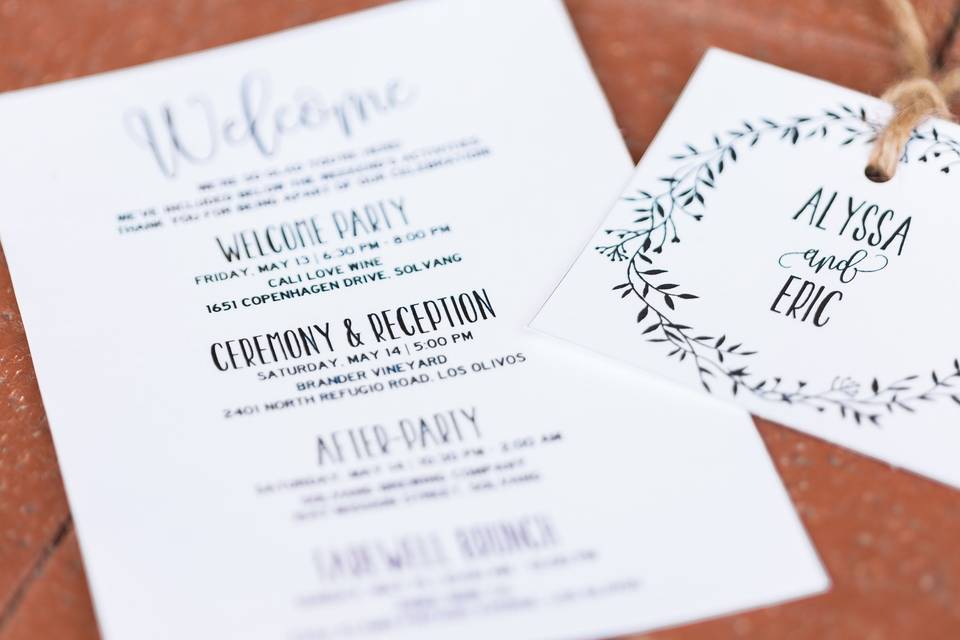 Welcome
WE'RE SO GLAD YOU'RE HERE!
WE'VE INCLUDED BELOW THE WEEKEND'S ACTIVITIES.
THANK YOU FOR BEING APART OF OUR CELEBRATION!
WELCOME PARTY
FRIDAY, MAY 13 | 6:30 PM - 8:00 PM
CALI LOVE WINE
1651 COPENHAGEN DRIVE, SOLVANG
CEREMONY & RECEPTION
SATURDAY, MAY 14 | 5:00 PM
BRANDER VINEYARD
2401 NORTH REFUGIO ROAD, LOS OLIVOS
AFTER-PARTY
SATURDAY, MAY 14 | 10:30 PM - 2:00 AM
SOLVANG BREWING COMPANY
MISSION STREET, SOLVANG
FAREWELL BRUNCH
ALYSSA
and
ERIC